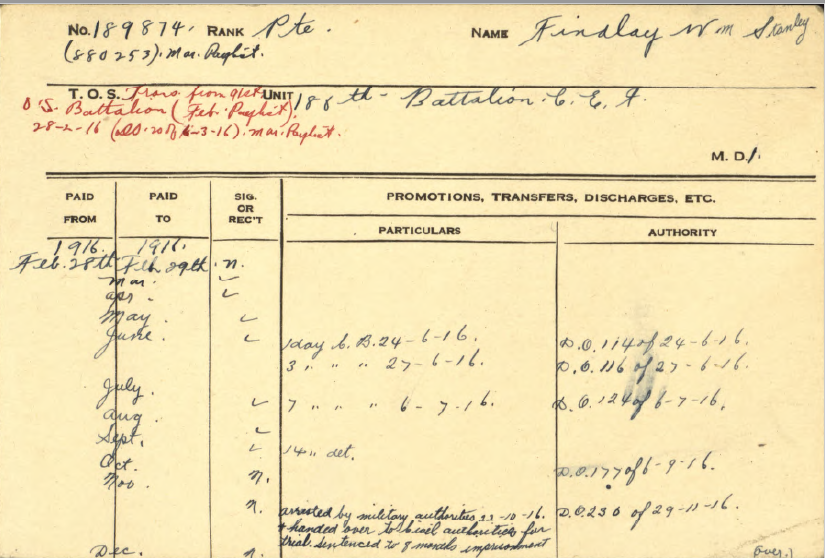 No. 189874. RANK Pte. NAME Findlay Wm Stanley
(880253). Mar. Paylist.
T. O. S. Trans. from 91st UNIT 186th - Battalion. C. E. F.
O'S. Battalion (Feb. Paylist).
28-2-16 (DO. 20 of 6-3-16). Mar. Paylist.
M. D. 1.
PAID FROM PAID TO SIG. OR REC'T PROMOTIONS, TRANSFERS, DISCHARGES, ETC.
PARTICULARS AUTHORITY
1916. 1916.
Feb. 28th Feb. 29th. n.
Mar. ✓
Apr. ✓
May. ✓
June. ✓ 1 day C. B. 24-6-16. D.O. 114 of 24-6-16.
3 " " " 27-6-16. D.O. 116 of 27-6-16.
July. ✓ 7 " " " 6-7-16. D.O. 124 of 6-7-16.
Aug. ✓
Sept. ✓ 14 " det.
Oct. n. D.O. 177 of 6-9-16.
Nov. n. arrested by military authorities -10-16. D.O. 230 of 29-11-16.
& handed over to civil authorities for
trial. sentenced to months imprisonment
Dec. n. over.)